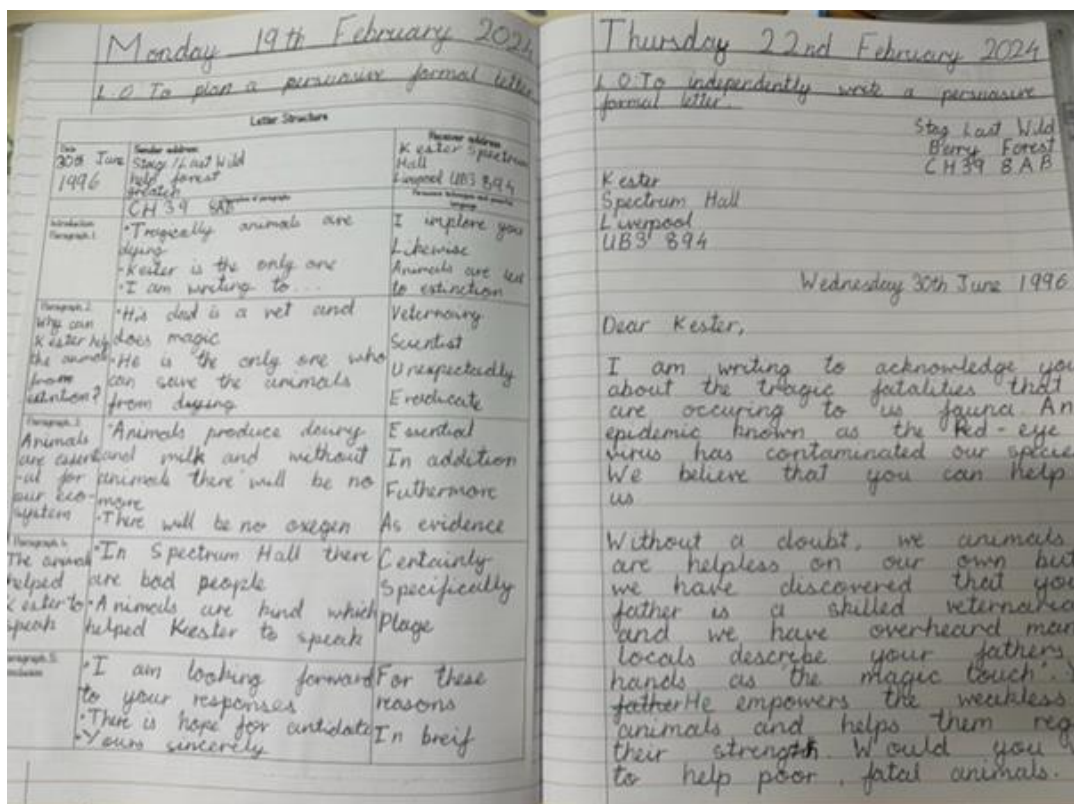 Monday 19th February 2024
L.O. To plan a persuasive formal letter
Letter Structure
Date
30th June
1996
Sender address
Stag/Last Wild
help forest
CH 39 8AB
Receiver address
Kester Spectrum
Hall
Liverpool UB3 894
Introduction
Paragraph 1
•Tragically animals are
dying
•Kester is the only one
•I am writing to...
I implore you
Likewise
Animals are
to extinction
Paragraph 2
Why can
Kester help
the animals
from
•His dad is a vet and
does magic
•He is the only one who
can save the animals
from dying
Veternairy
Scientist
Unexpectadly
Eradicate
Paragraph 3
Animals
are essenti
-al for
our eco-
system
•Animals produce
and milk and without
animals there will be no
more
•There will be no oxegen
Essential
In addition
Futhermore
As evidence
Paragraph 4
The animals
helped
Kester to
speak
•In Spectrum Hall there
are bad people
•Animals are kind which
helped Kester to speak
Certainly
Specifically
Plage
Paragraph 5
•I am looking forward
to your responses
•There is hope for antidate
•Yours sincerely
For these
reasons
In breif
Thursday 22nd February 2024
L.O. To independently write a persuasive
formal letter.
Stag Last Wild
Berry Forest
CH39 8AB
Kester
Spectrum Hall
Liverpool
UB3 894
Wednesday 30th June 1996
Dear Kester,
I am writing to acknowledge you
about the tragic fatalities that
are occuring to us fauna. An
epidemic known as the Red-eye
virus has contaminated our specie
We believe that you can help
us
Without a doubt, we animals
are helpless on our own but
we have discovered that you
father is a skilled veternaria
and we have overheard man
locals describe your fathers
hands as the 'magic touch'.
father He empowers the weakless
animals and helps them reg
their strength. Would you
to help poor, fatal animals.